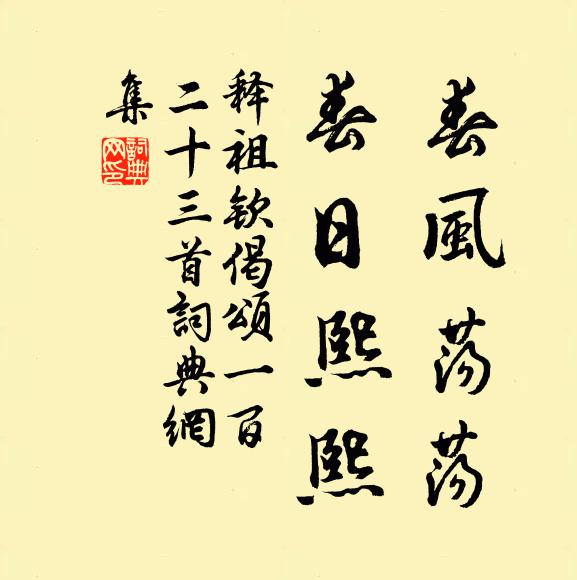 春風荡荡
春日熙熙
释祖钦偈頌一百
二十三首詞典網
集
詞典
网印